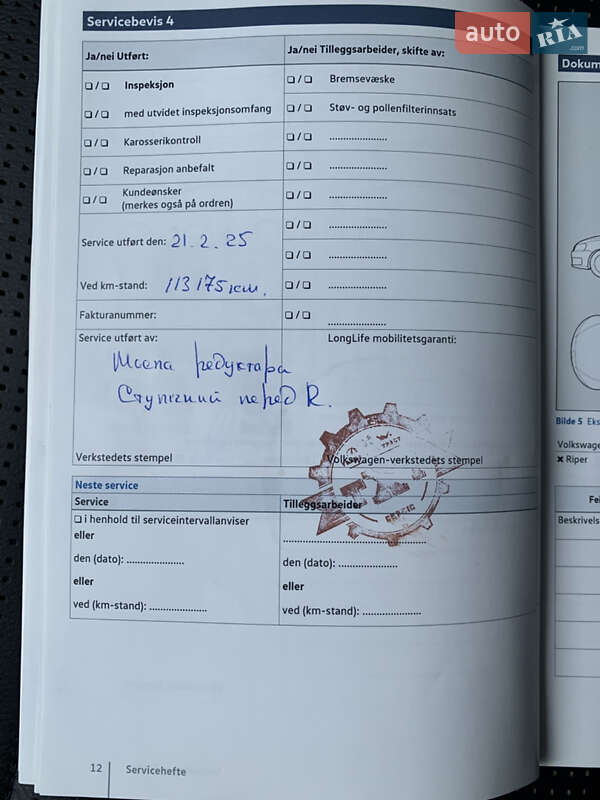 auto RIA .com
Servicebevis 4
Ja/nei Utført:
Ja/nei Tilleggsarbeider, skifte av:
❏ / ❏ Inspeksjon
❏ / ❏ Bremsevæske
❏ / ❏ med utvidet inspeksjonsomfang
❏ / ❏ Støv- og pollenfilterinnsats
❏ / ❏ Karosserikontroll
❏ / ❏ ......................
❏ / ❏ Reparasjon anbefalt
❏ / ❏ ......................
❏ / ❏ Kundeønsker
(merkes også på ordren)
❏ / ❏ ......................
❏ / ❏ ......................
Service utført den: 21.2.25
❏ / ❏ ......................
Ved km-stand: 113 175 км.
❏ / ❏ ......................
Fakturanummer:
❏ / ❏ ......................
Service utført av:
LongLife mobilitetsgaranti:
Масла редуктара
Ступічний перед R.
Verkstedets stempel
Volkswagen-verkstedets stempel
Neste service
Service
Tilleggsarbeider
❏ i henhold til serviceintervallanviser
eller
......................
den (dato): ......................
den (dato): ......................
eller
eller
ved (km-stand): ......................
ved (km-stand): ......................
12
Servicehefte
Dokum
Bilde 5 Eks
Volkswage
✖ Riper
Fei
Beskrivels